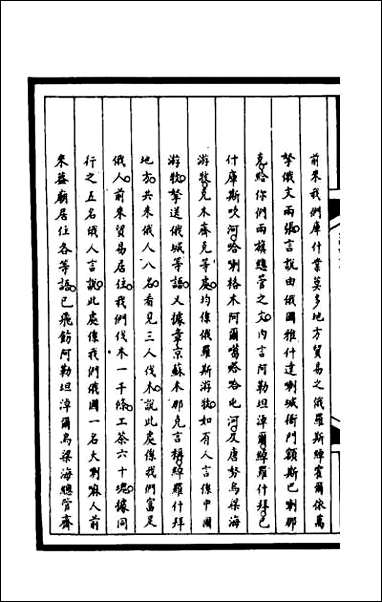 前來我們庫什業莫多地方貿易之俄羅斯綽霍爾依萬
拏俄文兩張言說由俄國雅什達喇城衙門額斯巴喇那
克給你們兩旗總管之文內言阿勒坦淖爾綽羅什拜巴
什庫斯吹河哈喇格木阿爾哈哈屯河及唐努烏梁海
游牧克木齊克等處均係俄羅斯游牧如有人言係中國
游牧拏送俄城等語又據韋京蘇木那克言稱綽羅什拜
地方共來俄人八名看見三人伐木說此處係我們富足
俄人前來貿易居住我們伐木一千條工茶六十塊據同
行之五名俄人言說此處係我們俄國一名大喇嘛人前
來蓋廟居住各等語已飛飭阿勒坦淖爾烏梁海總管齊